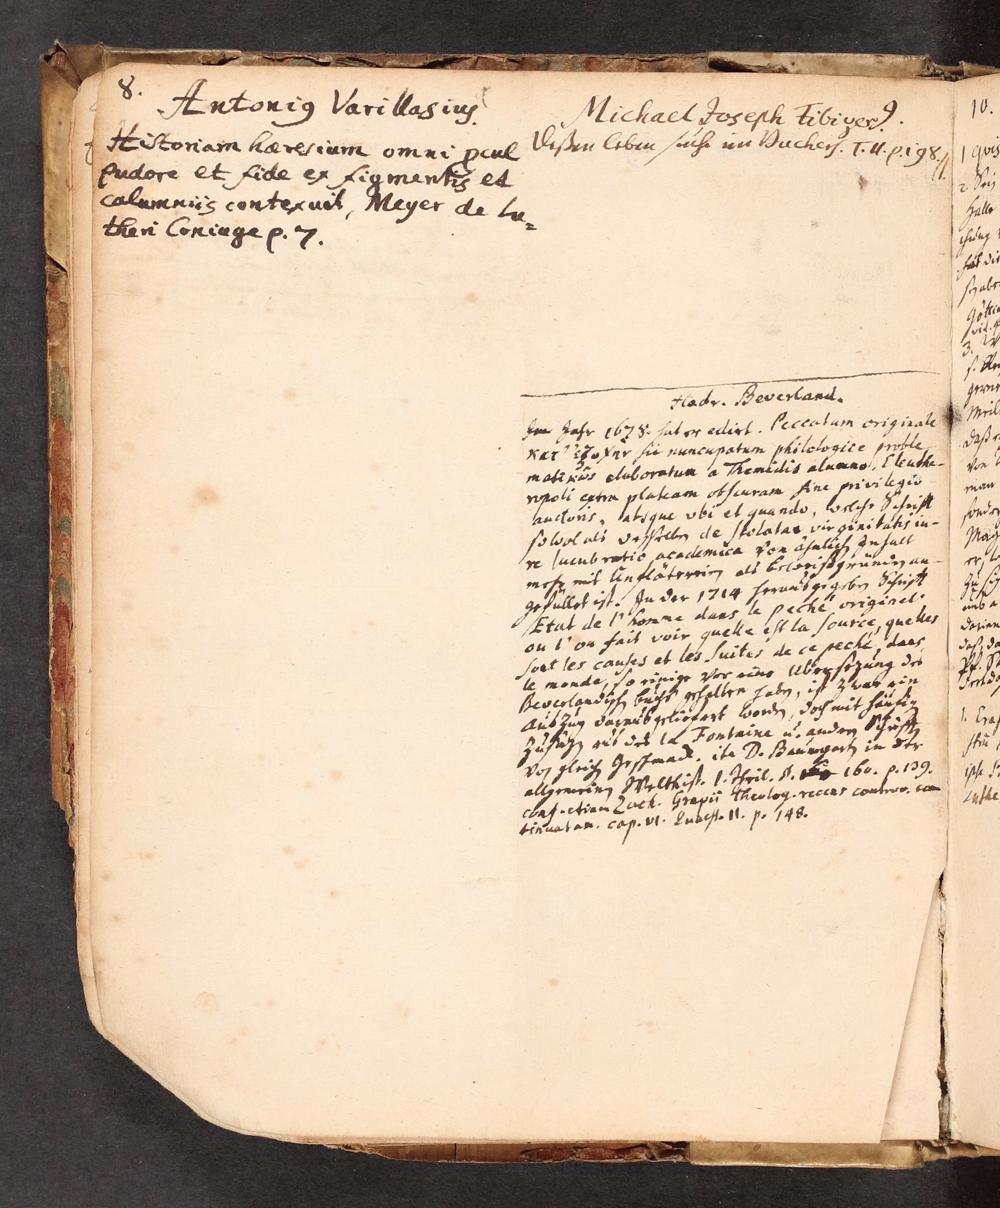 8.
Antoni9 Varillasius.
Historiam hæresium omni pcul
pudore et fide ex figmentis et
calumniis contexuit, Meyer de Lu=
theri Coniuge p. 7.
9.
Michael Joseph Fibiger
Deßen leben suche im Buchers. T. II. p. 198.
Hadr. Beverland.
Im Jahr 1678. hat er edirt. Peccatum originale
κατ' ἐξοχὴν sic nuncupatum philologice proble-
matικῶς elaboratum a Themidis alumno. Eleuthe-
ropoli extra plateam obscuram sine privilegio
auctoris, absque ubi et quando, welche Schrift
sowol als deßelben de stolatae virginitatis iu-
re lucubratio academica von ähnlich Inhalt
mehr mit Unflätereien als Beweißgründen an-
gefüllet ist. In der 1714 herausgegeben Schrift
Etat de l'homme dans le peché originel
ou l'on fait voir quelle est la source, quelles
sont les causes et les suites de ce peché dans
le monde, so einige vor eine Übersetzung des
Beverlandisch buchs gehalten haben, ist zwar ein
Auszug daraus geliefert worden, doch mit häufig
Zusätzen aus des la Fontaine u. andern Schrifften
von gleich Geschmack. ite D. Baumgart in der
allgemeinen Welthist. 1. Theil. S. 160. p. 139.
conf. etiam Zach. Grapii theolog. recens controv. con
tinuatam. cap. VI. Quaest. II. p. 148.
10.